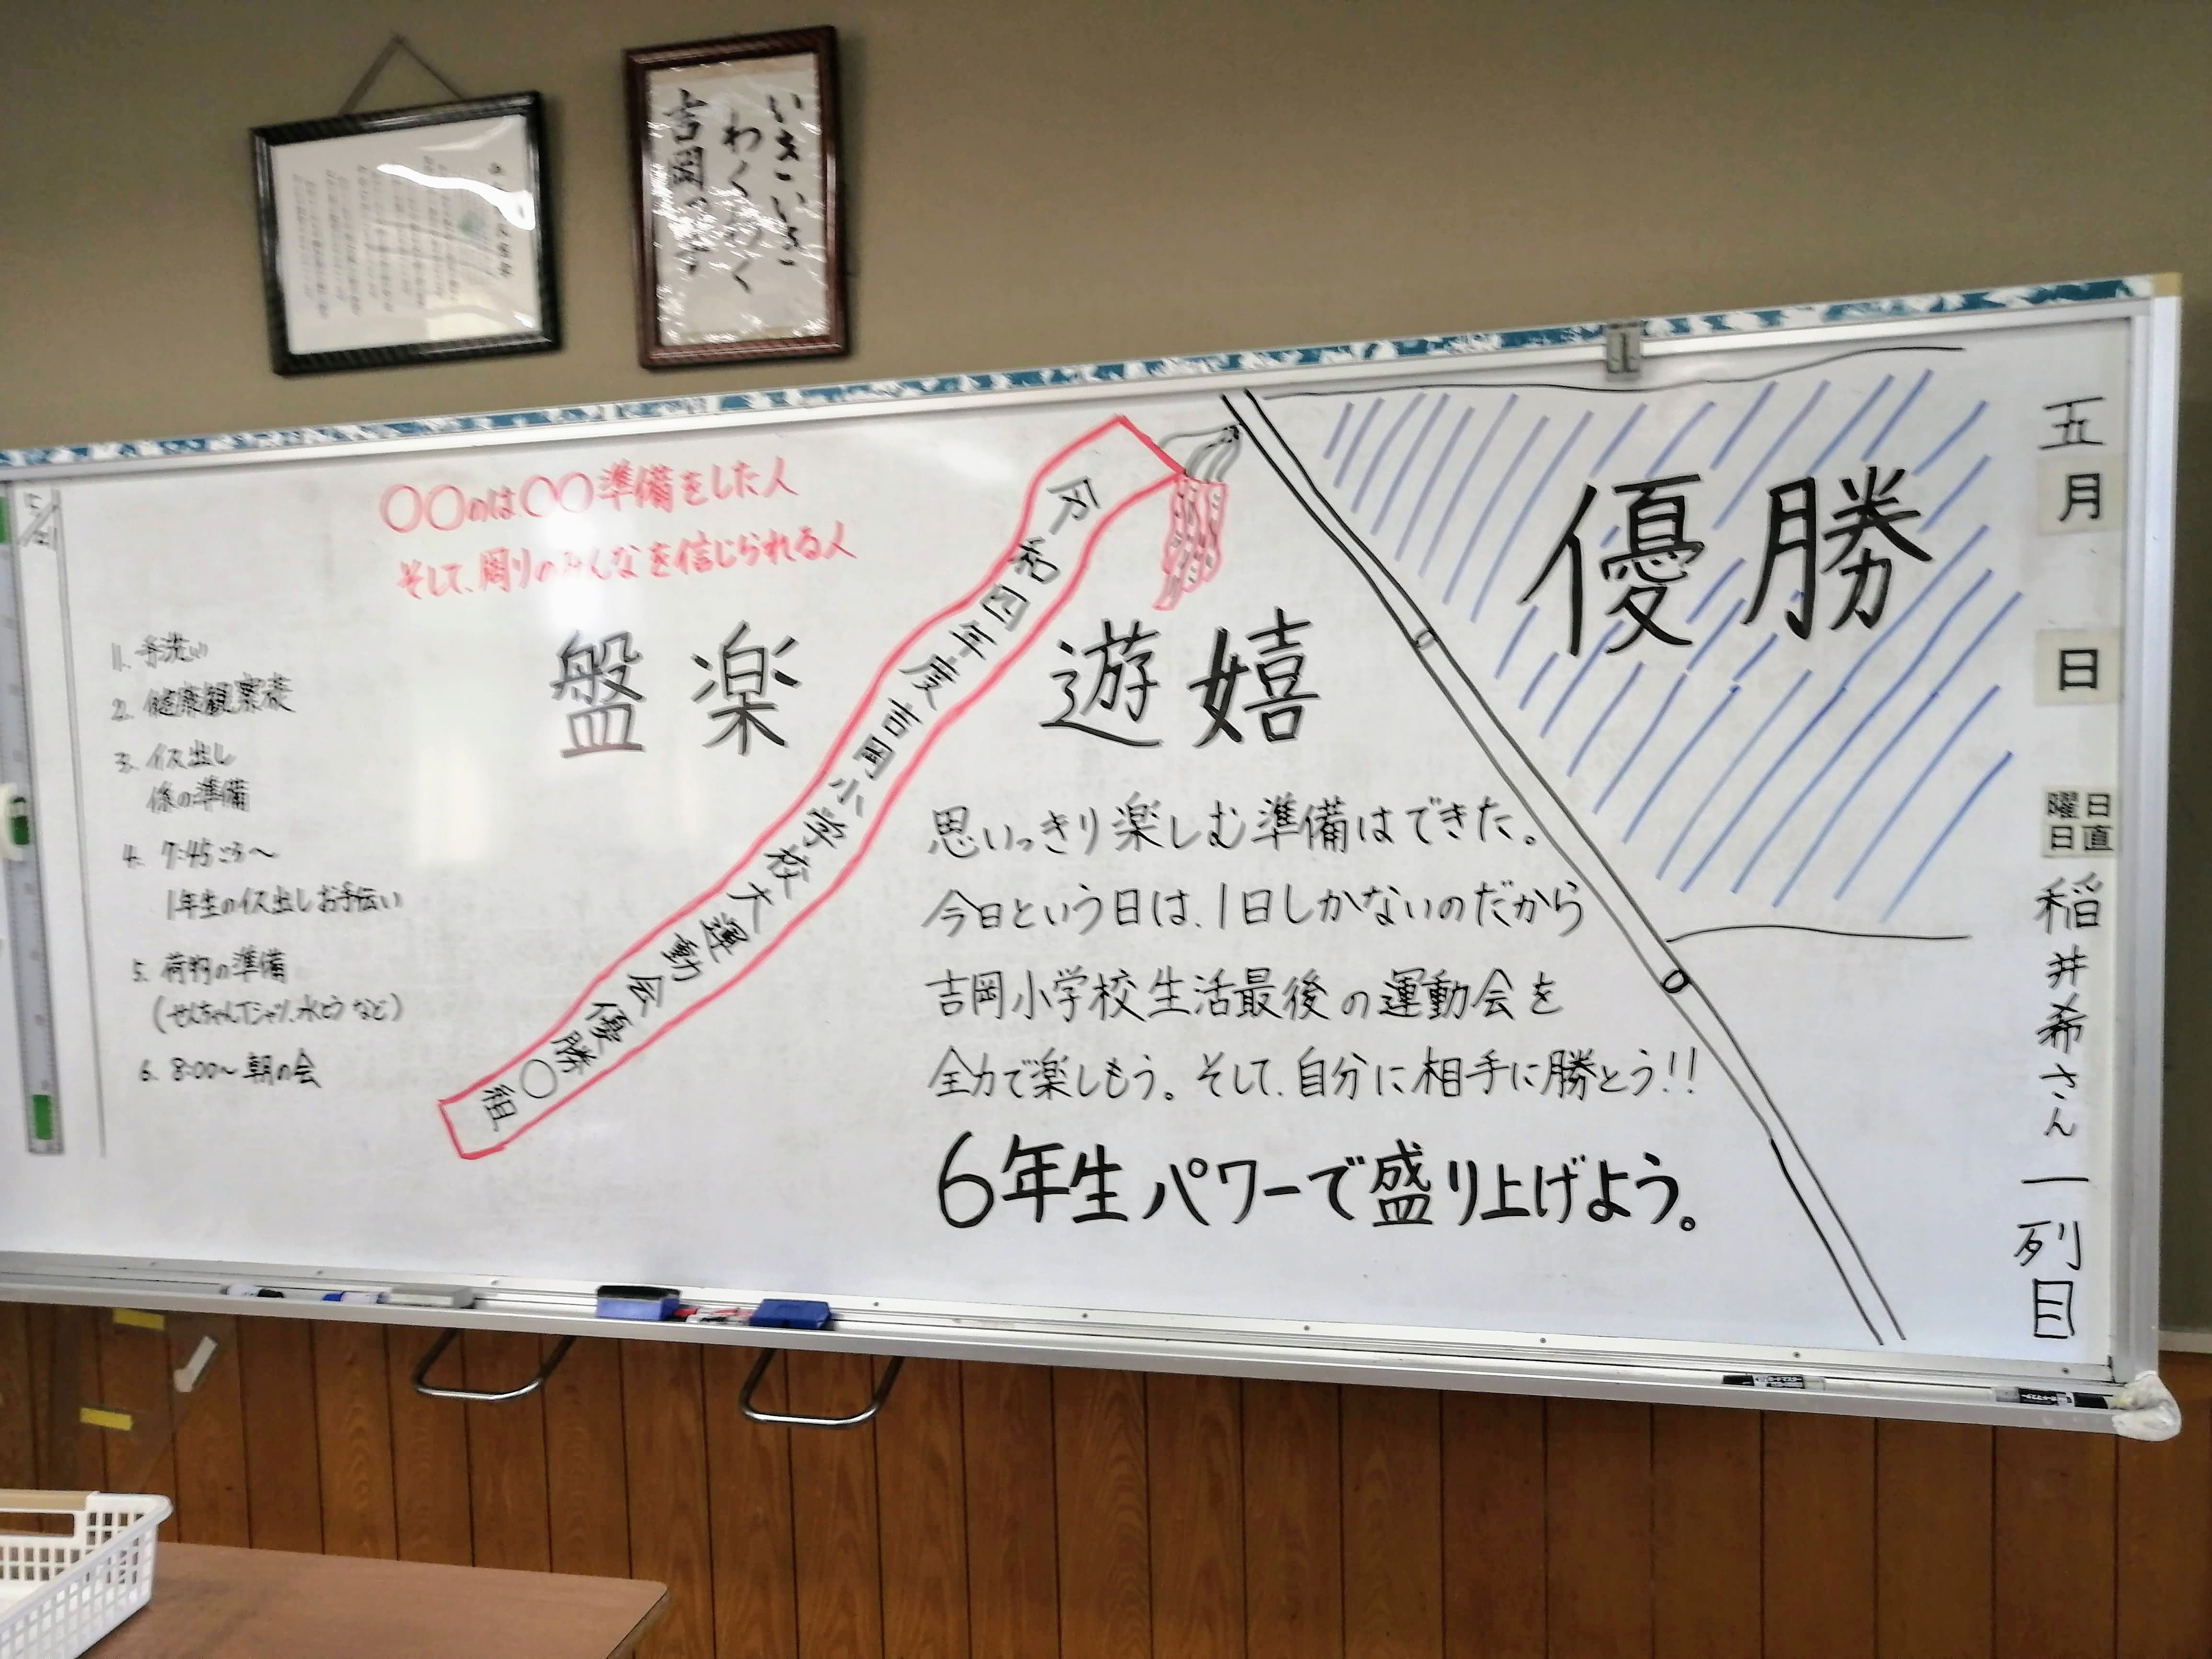 いきいき
わくわく
吉岡っ子
五月　日　曜日
日直
稲井希さん
一列目
優勝
令和四年度吉岡小学校大運動会優勝〇組
盤楽遊嬉
〇〇のは、〇〇準備をした人
そして、周りのみんなを信じられる人
思いっきり楽しむ準備はできた。
今日という日は、1日しかないのだから
吉岡小学校生活最後の運動会を
全力で楽しもう。そして、自分に相手に勝とう!!
6年生パワーで盛り上げよう。
5/21
1. 手洗い
2. 健康観察表
3. イス出し
係の準備
4. 7:45ごろ〜
1年生のイス出しお手伝い
5. 荷物の準備
(せんちゃんTシャツ、水とうなど)
6. 8:00〜朝の会